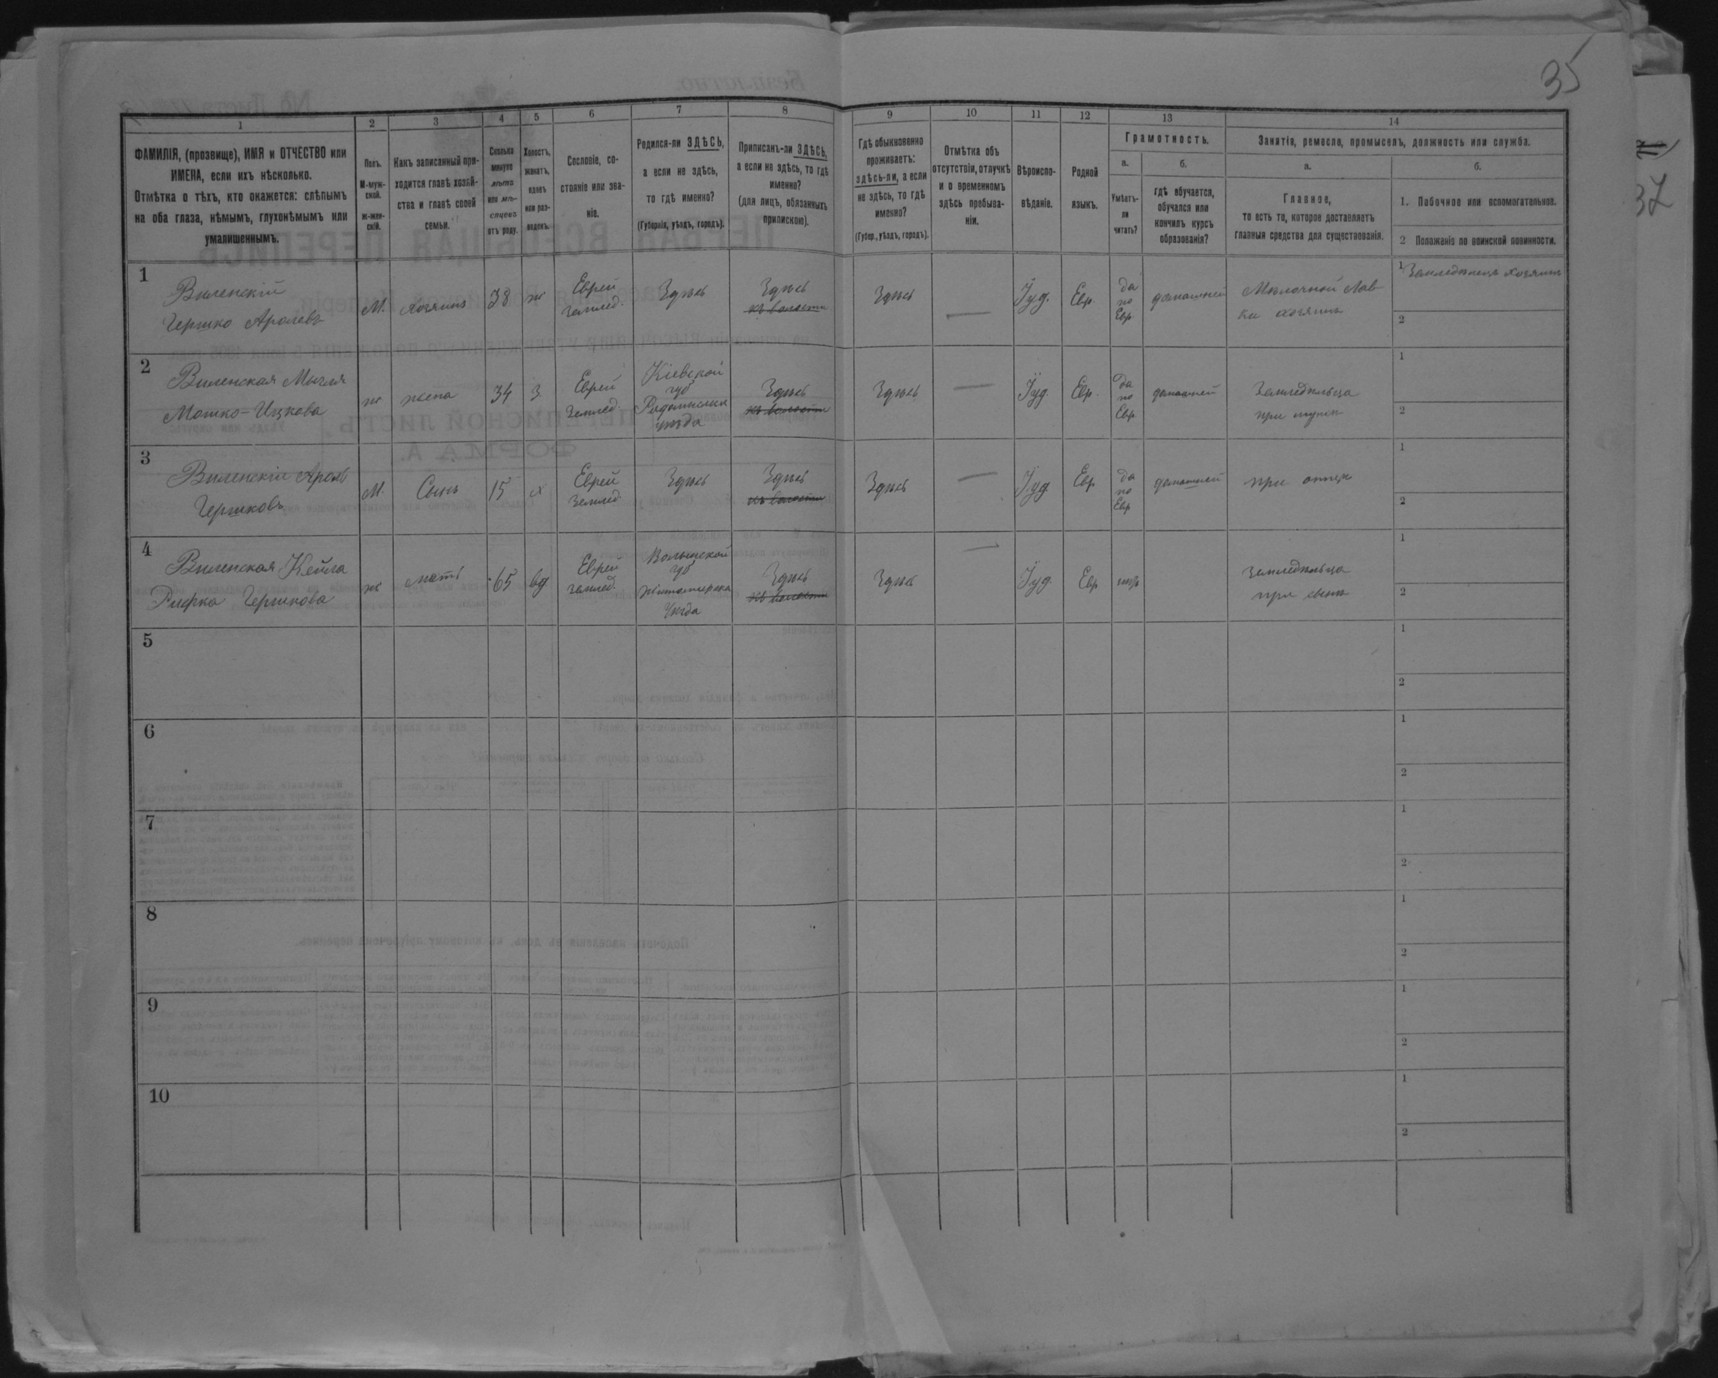 35
1
2
3
4
5
6
7
8
9
10
11
12
13
14
ФАМИЛІЯ, (прозвище), ИМЯ и ОТЧЕСТВО или
ИМЕНА, если ихъ нѣсколько.
Отмѣтка о тѣхъ, кто окажется: слѣпымъ
на оба глаза, нѣмымъ, глухонѣмымъ или
умалишеннымъ.
Полъ.
М-муж-
ской.
ж-жен-
скій.
Какъ записанный при-
ходится главѣ хозяй-
ства и главѣ своей
семьи.
Сколько
минуло
лѣтъ
или мѣ-
сяцевъ
отъ роду.
Холостъ,
женатъ,
вдовъ
или раз-
веденъ.
Сословіе, со-
стояніе или зва-
ніе.
Родился-ли ЗДѢСЬ,
а если не здѣсь,
то гдѣ именно?
(Губернія, уѣздъ, городъ).
Приписанъ-ли ЗДѢСЬ,
а если не здѣсь, то гдѣ
именно?
(для лицъ, обязанныхъ
припискою).
Гдѣ обыкновенно
проживаетъ:
здѣсь-ли, а если
не здѣсь, то гдѣ
именно?
(Губер., уѣздъ, городъ).
Отмѣтка объ
отсутствіи, отлучкѣ
и о временномъ
здѣсь пребыва-
ніи.
Вѣроиспо-
вѣданіе.
Родной
языкъ.
Грамотность.
а.
Умѣетъ-
ли
читать?
б.
гдѣ обучается,
обучался или
кончилъ курсъ
образованія?
Занятія, ремесло, промыселъ, должность или служба.
а.
Главное,
то есть то, которое доставляетъ
главныя средства для существованія.
б.
1. Побочное или вспомогательное.
2 Положеніе по воинской повинности.
1
Виленскій
Гершко Аролевъ
М.
хозяинъ
38
ж
Еврей
Землед.
Здѣсь
Здѣсь
къ волости
Здѣсь
—
Іуд.
Евр.
да
по
Евр
домашней
Мелочной Лав
ки хозяинъ
1 Земледѣлецъ хозяинъ
2
2
Виленская
Мошко-Ицкова
ж
жена
34
З.
Еврей
Землед.
Кіевской
губ
Радомысльск
уѣзда
Здѣсь
къ волости
Здѣсь
—
Іуд.
Евр.
да
по
Евр.
домашней
Земледѣльца
при мужѣ
1
2
3
Виленскій Аронъ
Гершковъ
М.
Сынъ
15
х
Еврей
Землед.
Здѣсь
Здѣсь
къ волости
Здѣсь
—
Іуд
Евр
да
по
Евр
домашней
при отцѣ
1
2
4
Виленская Кейла
Рифка Гершкова
ж
мать
65
вд
Еврей
землед.
Волынской
губ
Житомирска
Уѣзда
Здѣсь
къ волости
Здѣсь
—
Іуд
Евр
Земледѣльца
при сынѣ
1
2
5
1
2
6
1
2
7
1
2
8
1
2
9
1
2
10
1
2
37